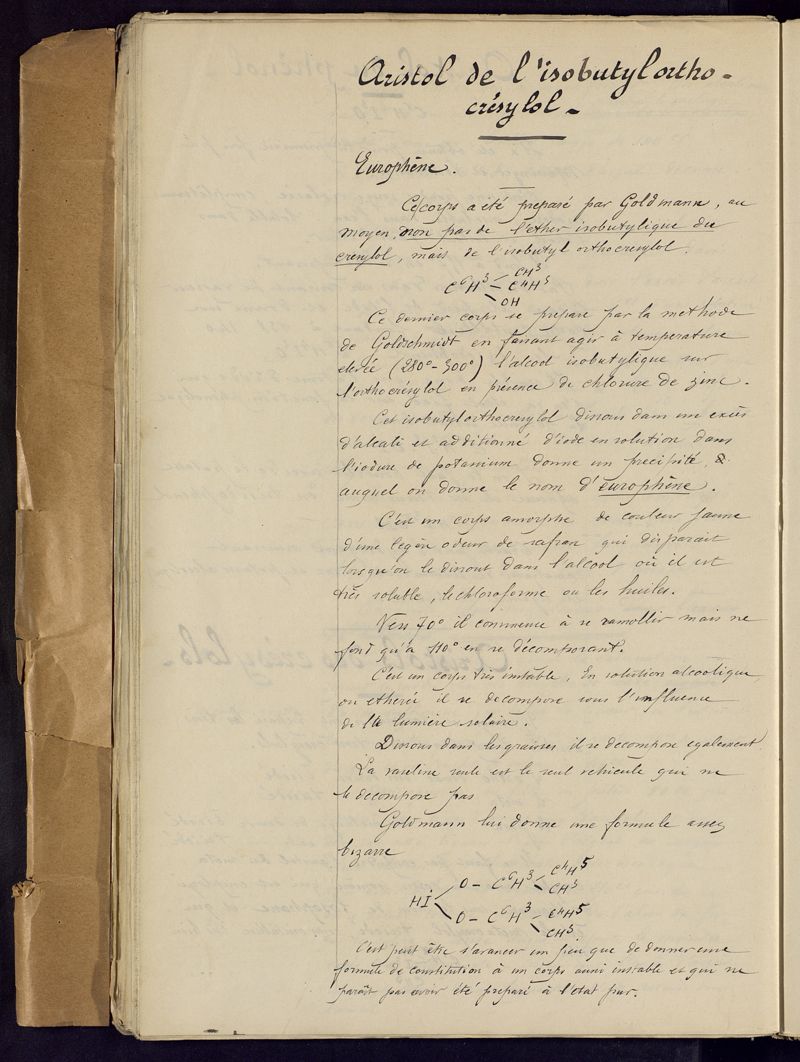 Aristol de l'isobutylortho-
crésylol -
Europhène.
Ce corps a été préparé par Goldmann, au
moyen, non pas de l'ether isobutylique du
crésylol, mais de l'isobutyl orthocresylol.
CH³
C⁶H³ - C⁴H⁵
OH
Ce dernier corps se prepare par la methode
de Goldschmidt en faisant agir à temperature
elevée (280°-300°) l'alcool isobutylique sur
l'orthocrésylol en présence de chlorure de zinc.
Cet isobutylorthocresylol dissous dans un excès
d'alcali et additionné d'iode en solution dans
l'iodure de potassium donne un precipité,
auquel on donne le nom d'europhène.
C'est un corps amorphe de couleur jaune
d'une legère odeur de safran qui disparait
lorsqu'on le dissout dans l'alcool où il est
très soluble, le chloroforme ou les huiles.
Vers 70° il commence à se ramollir mais ne
fond qu'à 110° en se décomposant.
C'est un corps très instable. En solution alcoolique
ou etherée il se decompose sous l'influence
de la lumière solaire.
Dissous dans les graisses il se decompose egalement.
La vaseline seule est le seul vehicule qui ne
le decompose pas
Goldmann lui donne une formule assez
bizarre
O - C⁶H³ C⁴H⁵
CH³
HI
O - C⁶H³ - C⁴H⁵
CH³
C'est peut être s'avancer un peu que de donner une
formule de constitution à un corps aussi instable et qui ne
paraît pas avoir été preparé à l'état pur.